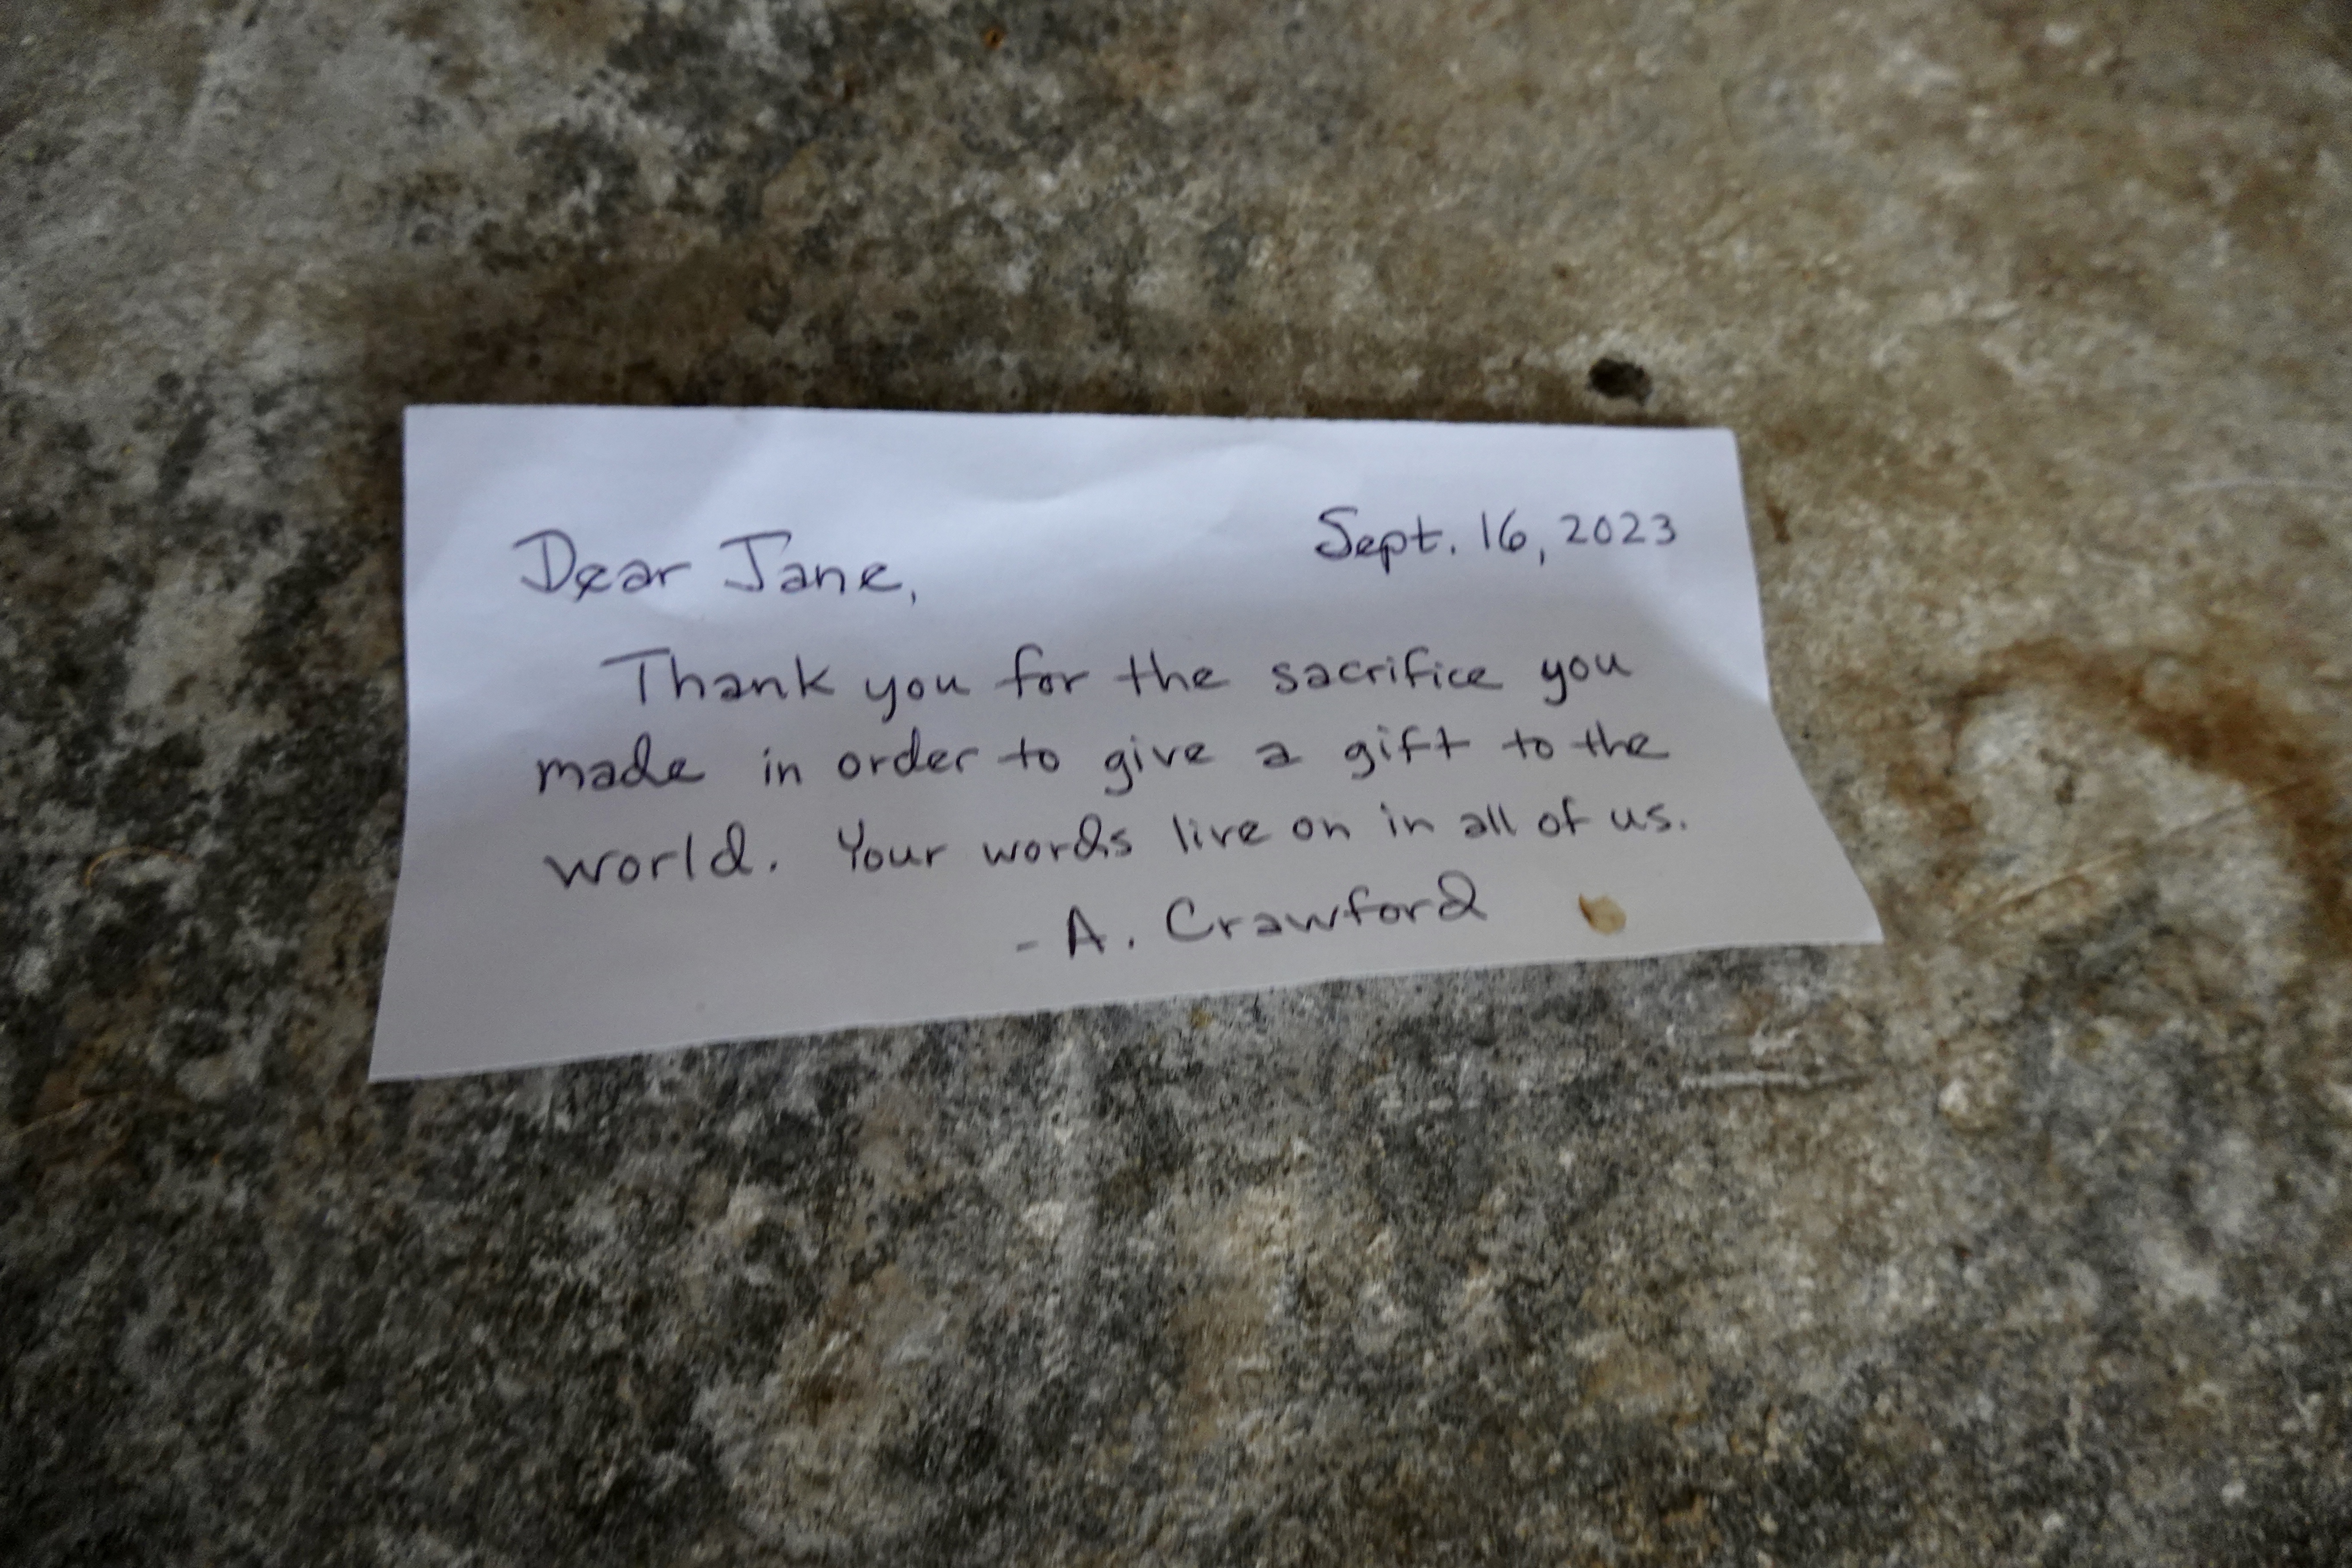 Sept. 16, 2023
Dear Jane,
Thank you for the sacrifice you
made in order to give a gift to the
world. Your words live on in all of us.
- A. Crawford